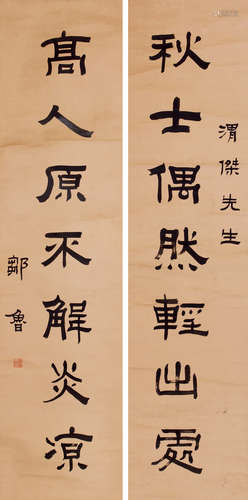 渭傑先生
秋士偶然輕出處
高人原不解炎涼
鄒魯